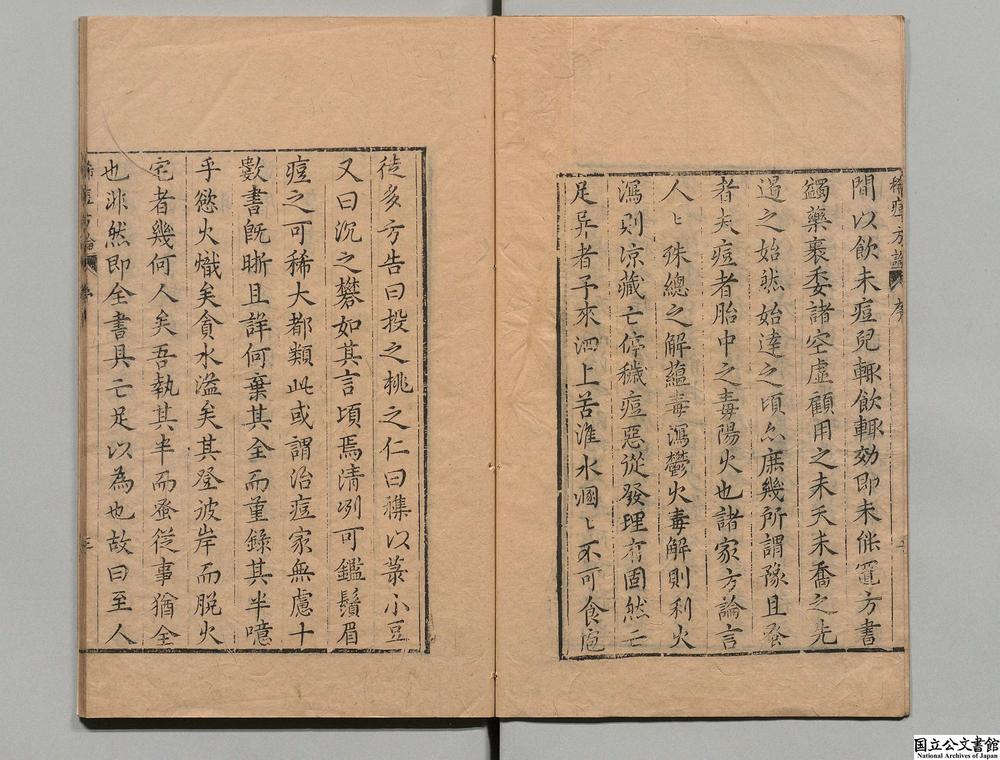 間以飲未痘兒輙飲輙効即未能置方書
蠲藥裹委諸空虛顧用之未夭未喬之先
遏之始然始達之頃亦庶幾所謂豫且蚤
者夫痘者胎中之毒陽火也諸家方論言
人〻殊總之解蘊毒瀉鬱火毒解則利火
瀉則凉藏亡停穢痘惡從發理有固然亡
足异者予來泗上苦淮水溷〻不可食庖
徒多方告曰投之桃之仁曰糝以菉小豆
又曰沉之礬如其言頃焉清冽可鑑鬚眉
痘之可稀大都類此或謂治痘家無慮十
數書旣晰且詳何棄其全而重錄其半噫
乎慾火熾矣貪水溢矣其登彼岸而脫火
宅者幾何人矣吾執其半而蚤從事猶全
也非然即全書具亡足以為也故曰至人
稀痘方論
序
三
国立公文書館
National Archives of Japan